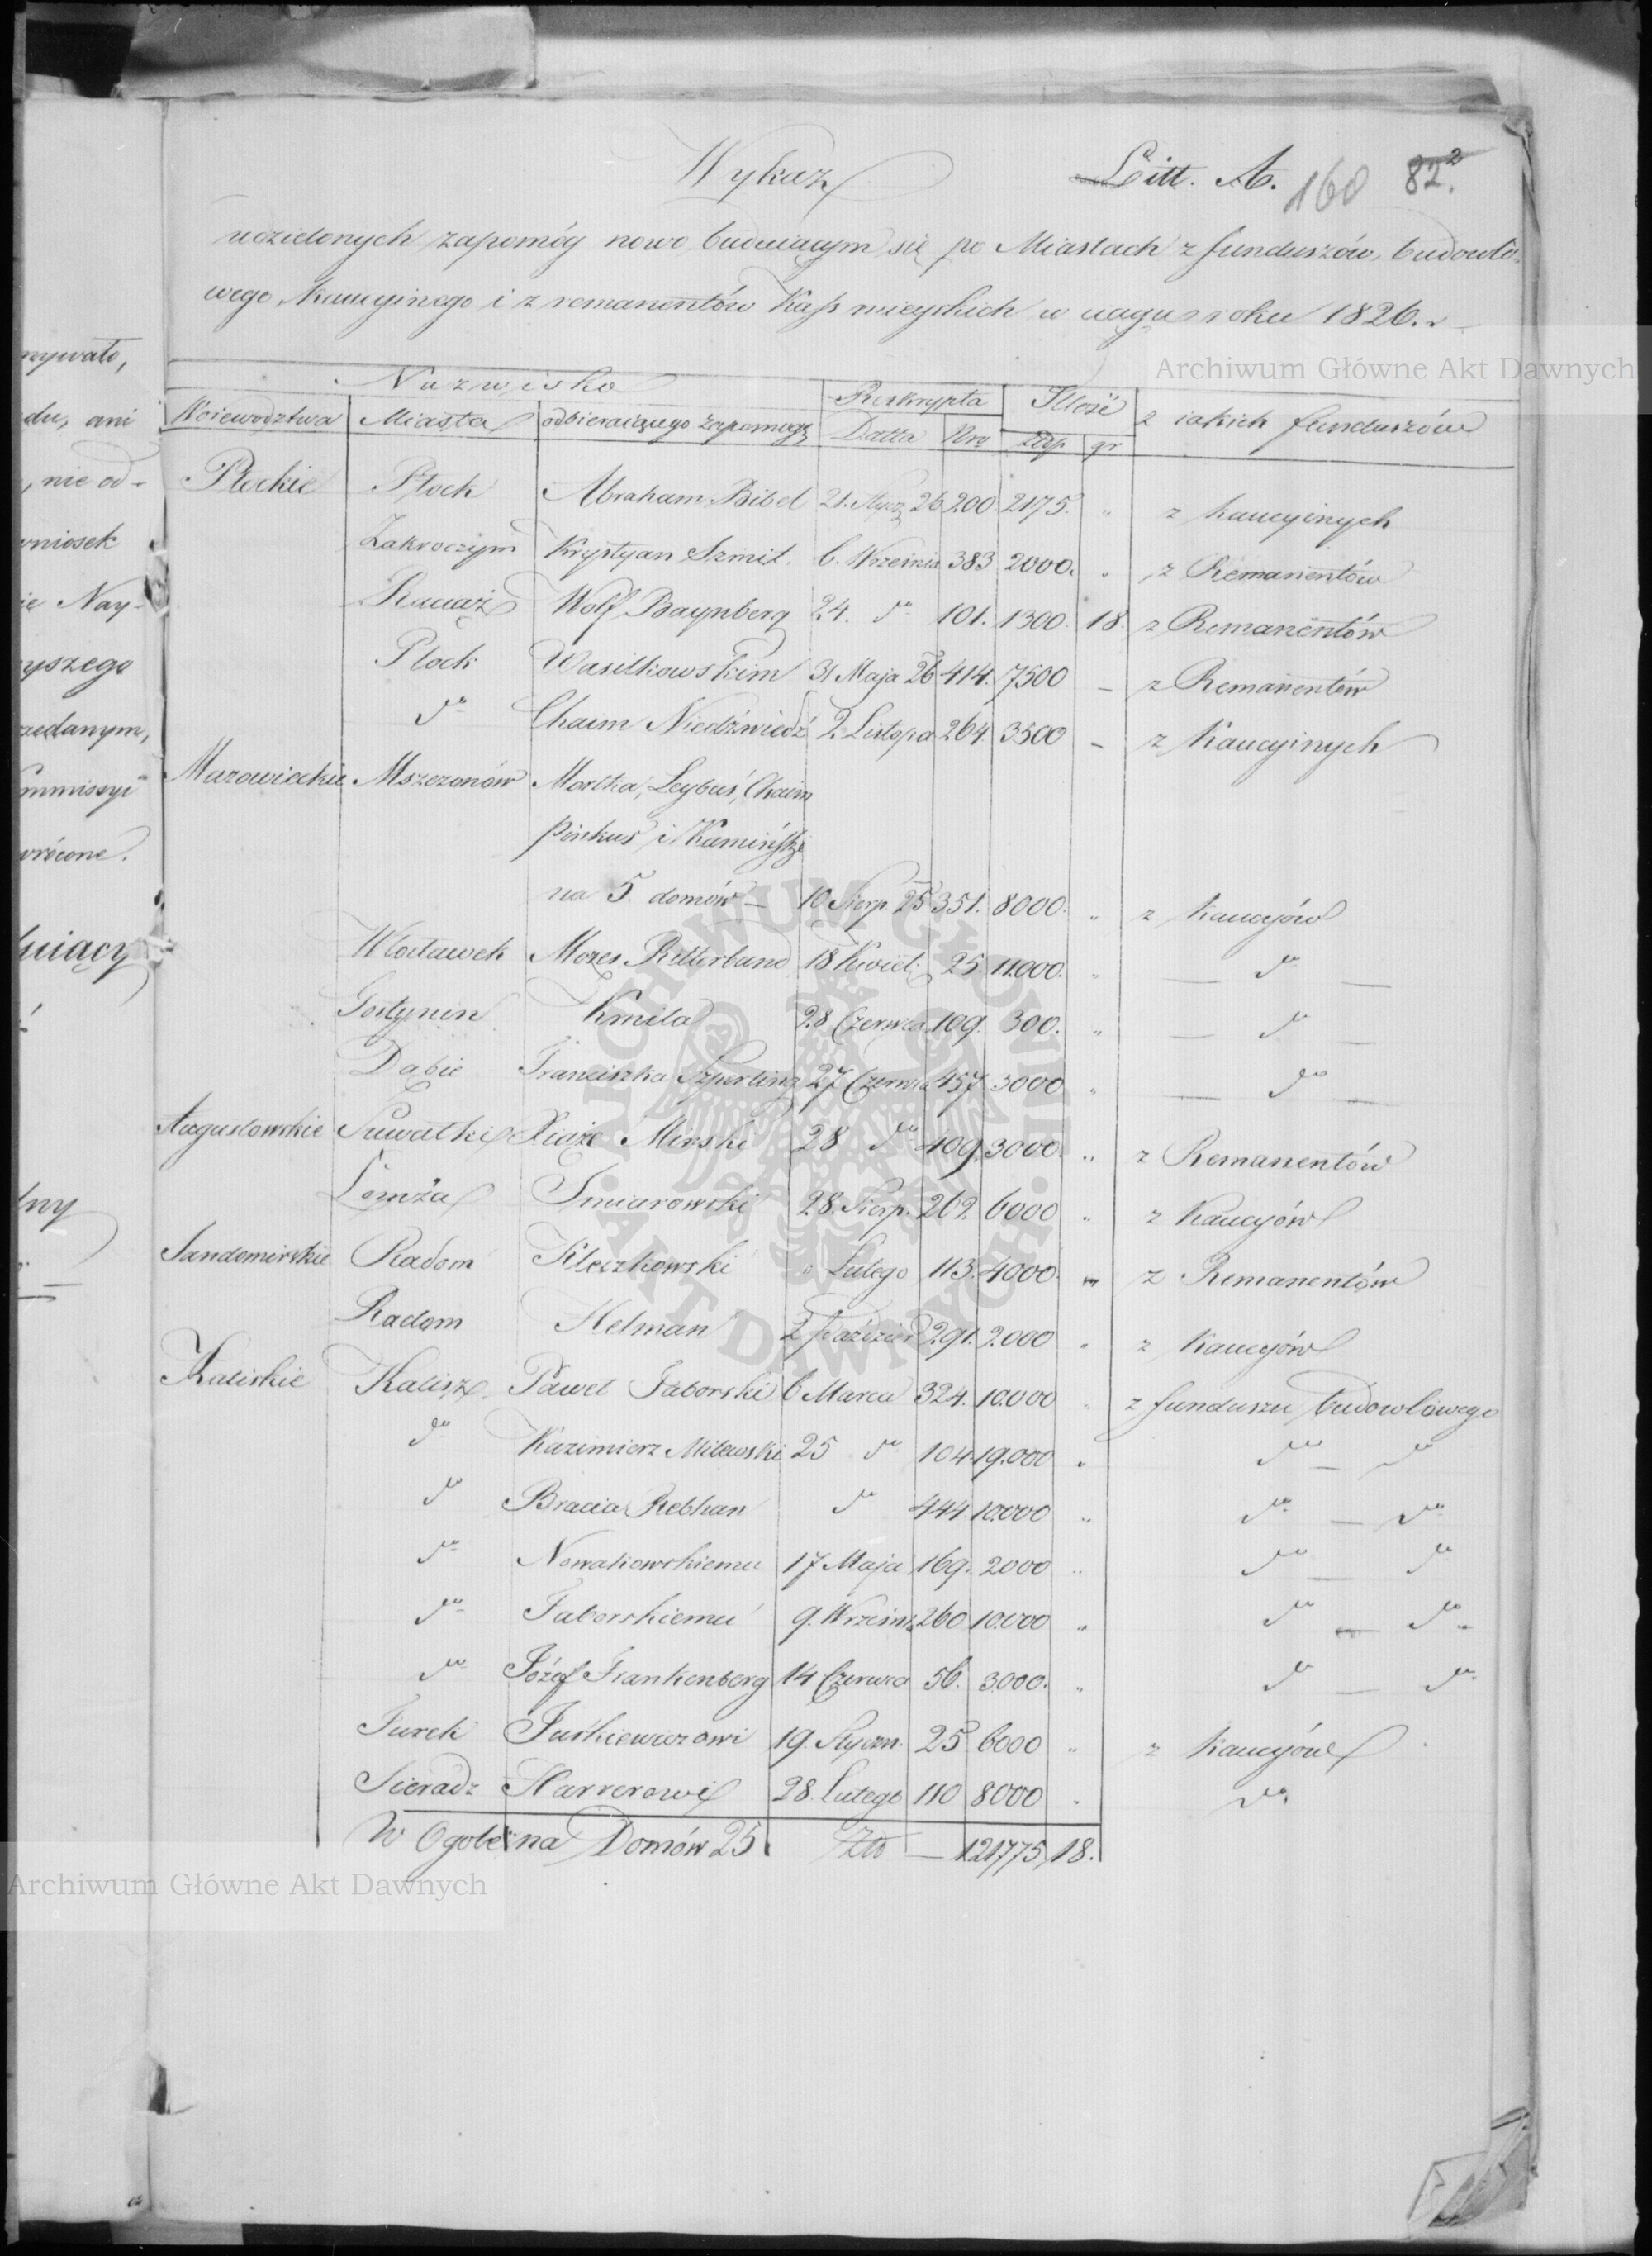 Wykaz
Litt. A. 160 82. 2
udzielonych zapomóg nowo buduiącym się po Miastach z funduszów, budowlo-
wego, Kaucyinego i z remanentów Kass mieyskich w ciągu roku 1826. r
Archiwum Główne Akt Dawnych
Nazwisko Reskrypta Ilość z iakich funduszów
Woiewodztwa Miasta odbieraiącego zapomogę Datta Nro Złp gr
Płockie Płock Abraham Bibel 21. 26 200. 2175. „ z kaucyinych
Zakroczym Krystyan Szmit. 6. Września 383 2000. „ z Remanentów
Raciąż Wolf Baynberg 24. do 101. 1300. 18. z Remanentów
Płock Wasilkowskim 31 Maja 26 414. 7500 – z Remanentów
do Chaim Niedźwiedź 2. Listopa 264 3500 – z Kaucyinych
Mazowieckie Mszczonów Mortka, Leybuś, Chaim
Pinkus i Kamińskie
na 5. domów – 10 Sierp 25 351. 8000. „ z kaucyów
Włocławek Mozes Ritterband 18 Kwiet. 25. 11.000. „ — do —
Gostynin Kmita 28 Czerwca 109. 300. „ — do —
Dąbie Franciszka Szperling 27 Czerwca 457 3000 „ — do —
Augustowskie Suwałki Xiąże Mirski 28 do 409. 3000. „ z Remanentów
Łomża Smiarowski 28. Sierp. 262. 6000 „ z Kaucyów
Sandomirskie Radom Kleczkowski „ Lutego 113. 4000. „ z Remanentów
Radom Helman 2 Paździer 291. 2.000 „ z kaucyów
Kaliskie Kalisz Paweł Taborski 6 Marca 324. 10.000 „ z funduszu budowlowego
do Kazimierz Milewski 25 do 104. 19.000 „ do — do
do Bracia Rebhan do 444. 10.000 „ do — do
do Nowakowskiemu 17 Maja 169. 2000 „ do — do
do Taborskiemu 9. Wrześnią 260 10.000 „ do — do
do Józef Frankenberg 14 Czerwca 56. 3.000. „ do — do
Turek Juśkiewiczowi 19. Stycżn. 25 6000 „ z kaucyów
Sieradz Harrerowi 28. Lutego 110 8000 „ do
W Ogole na Domów 25 Złp — 121775 18.
Archiwum Główne Akt Dawnych
ARCHIWUM GŁÓWNE
AKT DAWNYCH
mywało,
du, ani
, nie od-
wniosek
ie Nay-
yszego
zedanym,
ommissyi
wrócone.